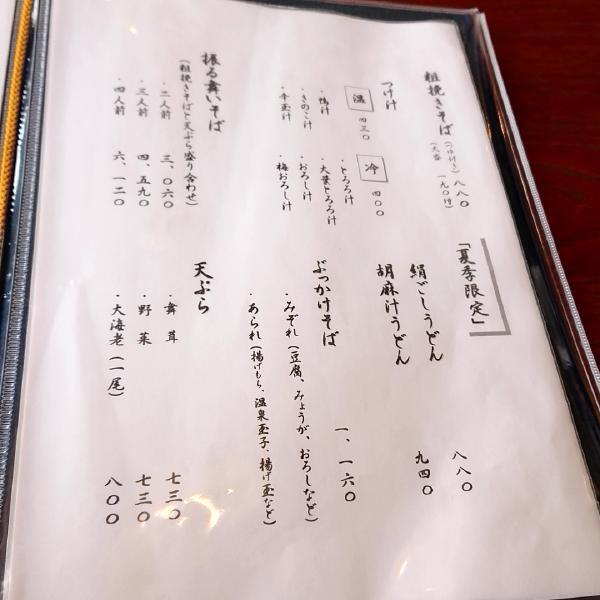 粗挽きそば（つゆ付き） 八八〇
（大盛 一九〇増）
つけ汁
温 四三〇
・鴨汁
・きのこ汁
・辛玉汁
冷 四〇〇
・とろろ汁
・大葉とろろ汁
・おろし汁
・梅おろし汁
振る舞いそば
（粗挽きそばと天ぷら盛り合わせ）
・二人前 三、〇六〇
・三人前 四、五九〇
・四人前 六、一二〇
「夏季限定」
絹ごしうどん 八八〇
胡麻汁うどん 九四〇
ぶっかけそば 一、一六〇
・みぞれ（豆腐、みょうが、おろしなど）
・あられ（揚げもち、温泉玉子、揚げ玉など）
天ぷら
・舞茸 七三〇
・野菜 七三〇
・大海老（一尾） 八〇〇